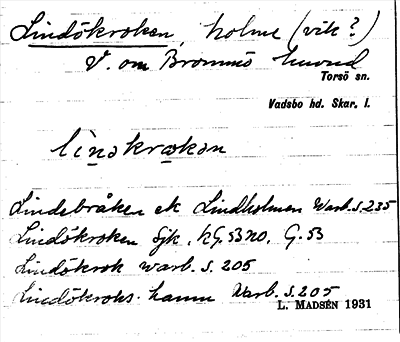 Lindökroken, holme (vik?)
V. om Brommö huvud
Torsö sn.
Vadsbo hd. Skar. l.
li̱nəkrɷkən
Lindebråken ek Lindholmen Warb. s. 235
Lindökroken Sjk. hG. 53 no. G. 53
Lindökrok Warb. s. 205
Lindökroks hamn Warb. s. 205
L. MADSÉN 1931